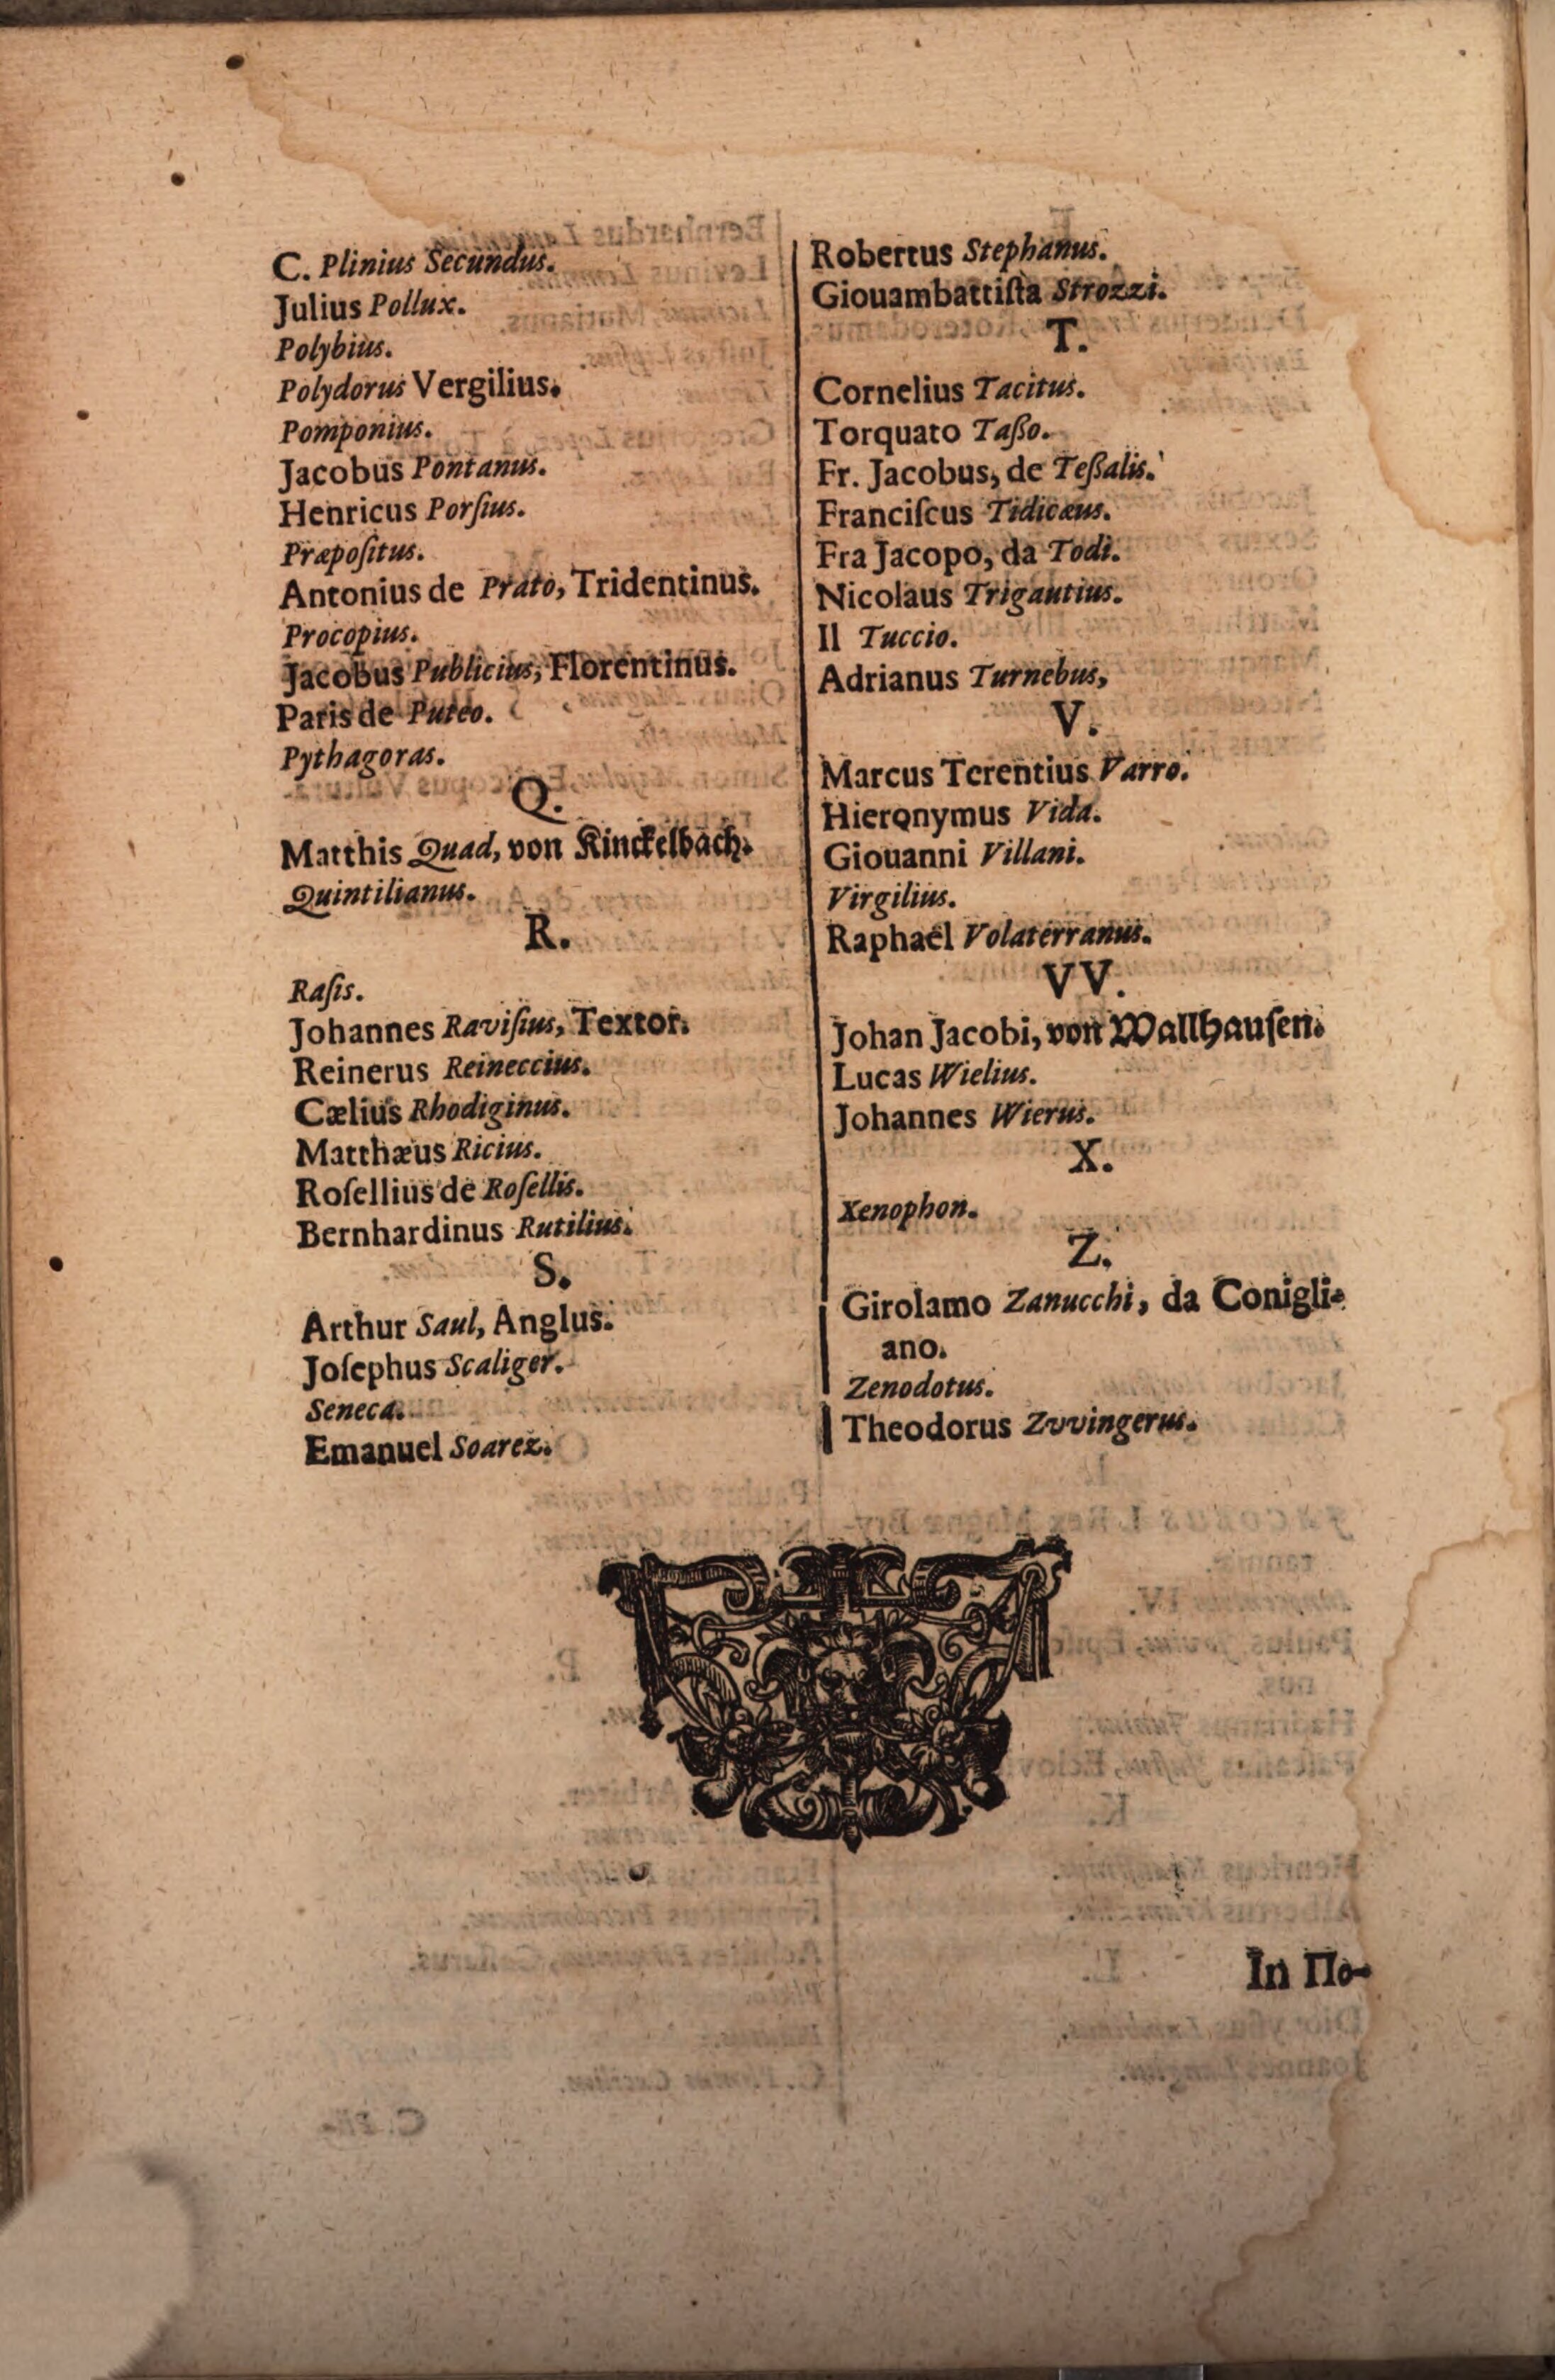 C. Plinius Secundus.
Julius Pollux.
Polybius.
Polydorus Vergilius.
Pomponius.
Jacobus Pontanus.
Henricus Porſius.
Præpoſitus.
Antonius de Prato, Tridentinus.
Procopius.
Jacobus Publicius, Florentinus.
Paris de Puteo.
Pythagoras.
Q.
Matthis Quad, von Kinckelbach.
Quintilianus.
R.
Raſis.
Johannes Raviſius, Textor.
Reinerus Reineccius.
Cælius Rhodiginus.
Matthæus Ricius.
Roſellius de Roſellis.
Bernhardinus Rutilius.
S.
Arthur Saul, Anglus.
Joſephus Scaliger.
Seneca.
Emanuel Soarez.
Robertus Stephanus.
Giouambattiſta Strozzi.
T.
Cornelius Tacitus.
Torquato Taßo.
Fr. Jacobus, de Teßalis.
Franciſcus Tidicæus.
Fra Jacopo, da Todi.
Nicolaus Trigautius.
Il Tuccio.
Adrianus Turnebus,
V.
Marcus Terentius Varro.
Hieronymus Vida.
Giouanni Villani.
Virgilius.
Raphaël Volaterranus.
VV.
Johan Jacobi, von Wallhauſen.
Lucas Wielius.
Johannes Wierus.
X.
Xenophon.
Z.
Girolamo Zanucchi, da Conigli-
ano.
Zenodotus.
Theodorus Zvvingerus.
In Πο-